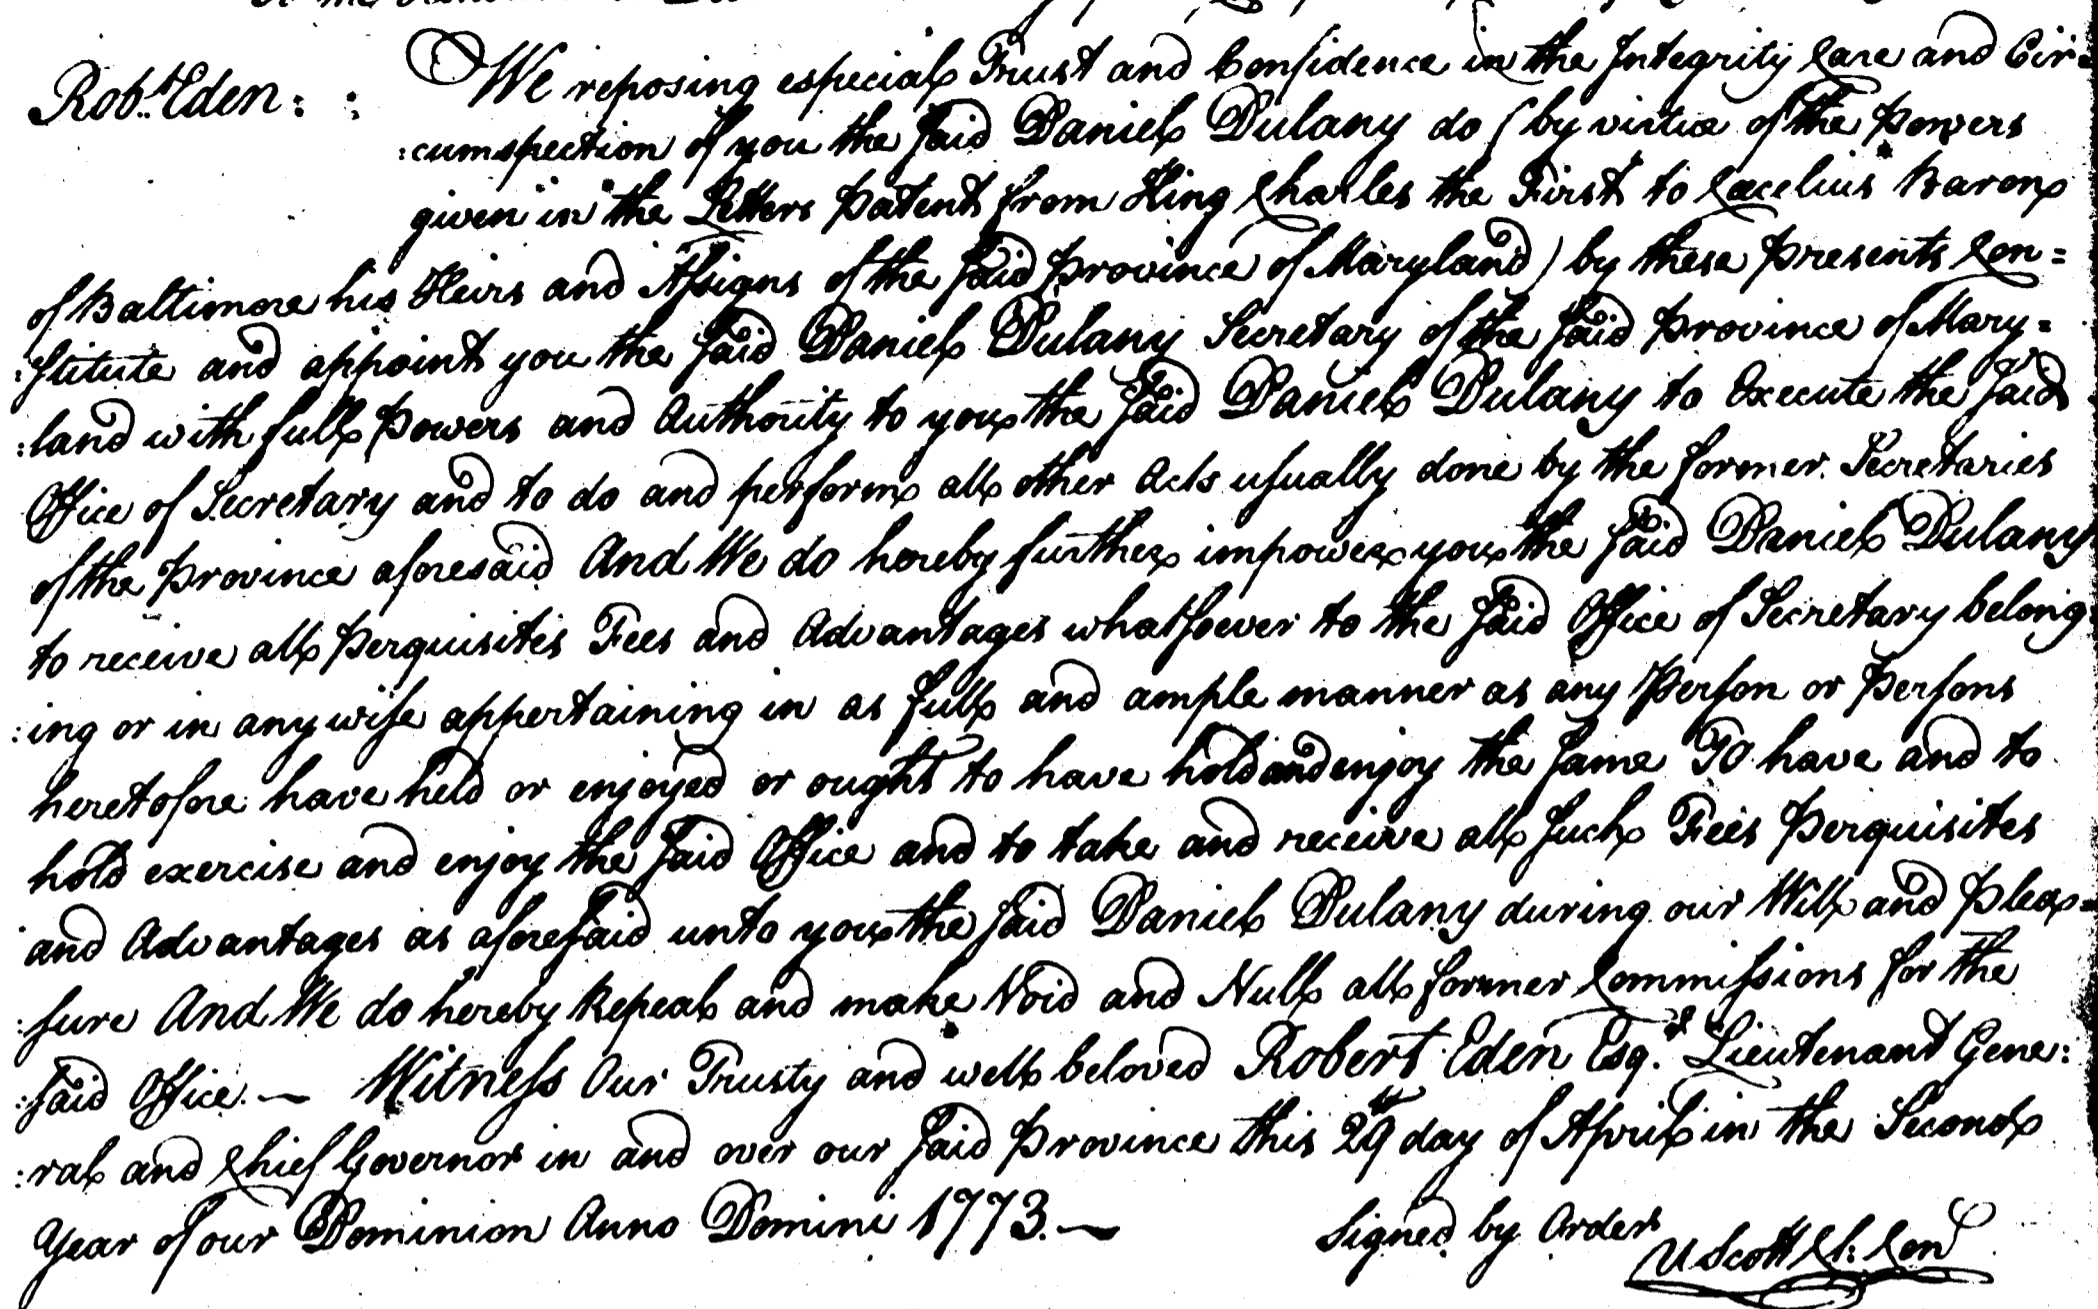 Robt. Eden : : We reposing especial Trust and Confidence in the Integrity Care and Cir=
:cumspection of you the said Daniel Dulany do (by virtue of the Powers
given in the Letters Patent from King Charles the First to Cæcelius Baron
of Baltimore his Heirs and Assigns of the said Province of Maryland) by these Presents Con=
:stitute and appoint you the said Daniel Dulany Secretary of the said Province of Mary=
:land with full Powers and Authority to you the said Daniel Dulany to Execute the said
Office of Secretary and to do and perform all other Acts usually done by the former Secretaries
of the Province aforesaid And We do hereby further impower you the said Daniel Dulany
to receive all Perquisites Fees and Advantages whatsoever to the said Office of Secretary belong
:ing or in any wise appertaining in as full and ample manner as any Person or Persons
heretofore have held or enjoyed or ought to have hold and enjoy the same To have and to
hold exercise and enjoy the said Office and to take and receive all such Fees Perquisites
and Advantages as aforesaid unto you the said Daniel Dulany during our Will and Plea=
:sure And We do hereby Repeal and make Void and Null all former Commissions for the
:said Office.— Witness Our Trusty and well beloved Robert Eden Esqr. Lieutenant Gene:
:ral and Chief Governor in and over our said Province this 29th day of April in the Second
Year of our Dominion Anno Domini 1773.—
Signed by Order
U Scott Cl. Con